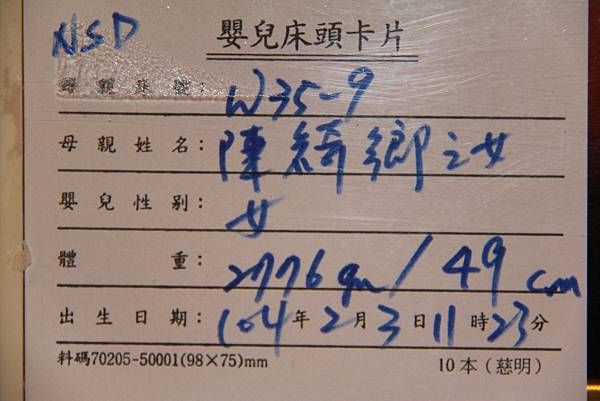 NSD
嬰兒床頭卡片
母親床號： W35-9
母親姓名： 陳綺鄉之女
嬰兒性別： 女
體重： 2776gm / 49cm
出生日期： 104年2月3日11時23分
料碼70205-50001(98×75)mm 10本（慈明）